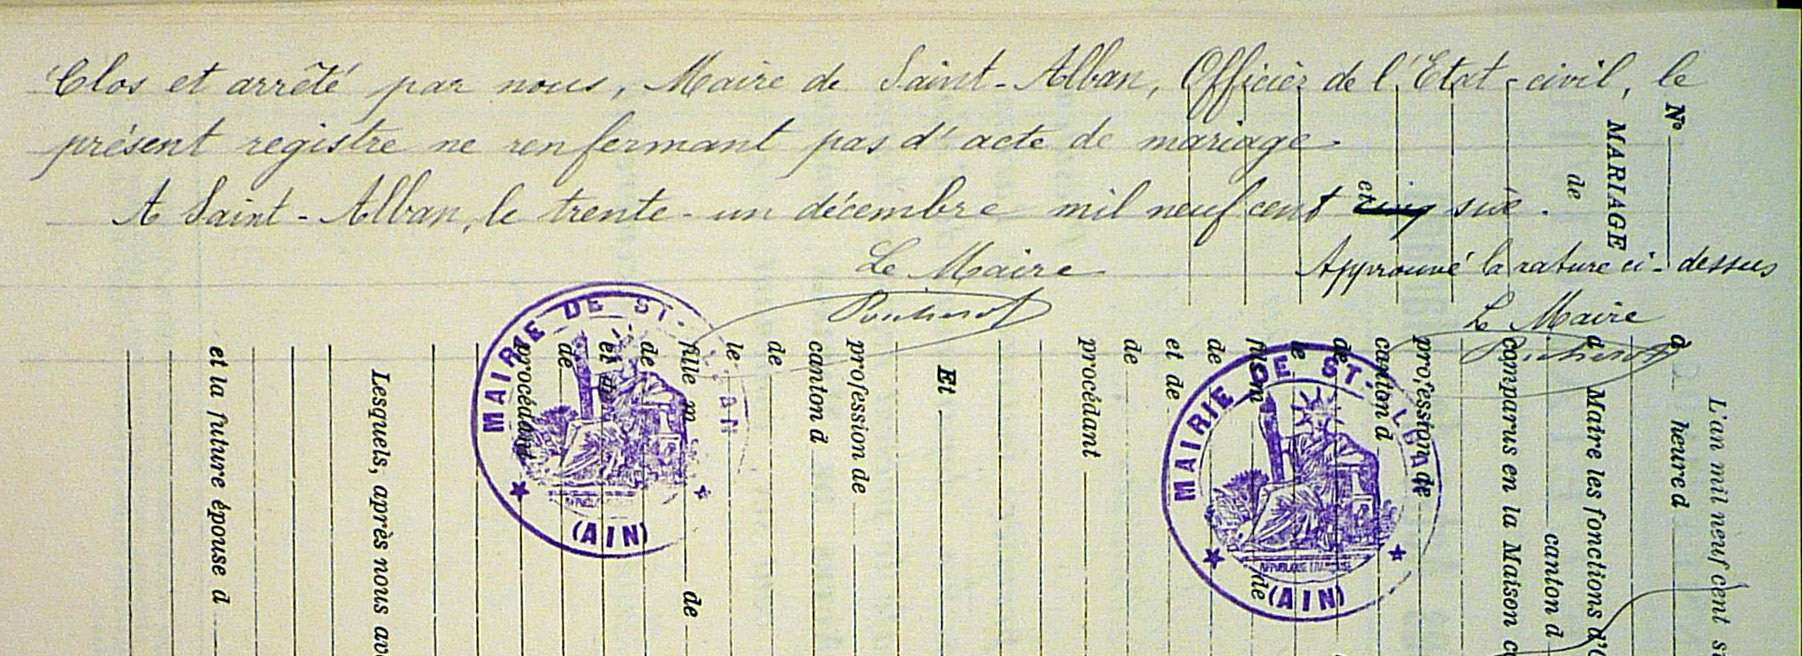 Clos et arrêté par nous, Maire de Saint-Alban, Officier de l'Etat-civil, le
présent registre ne renfermant pas d'acte de mariage.
A Saint-Alban, le trente-un décembre mil neuf cent cinq six.
Le Maire
Approuvé la rature ci-dessus
Le Maire
MAIRIE DE ST-ALBAN
(AIN)
MAIRIE DE ST-ALBAN
RÉPUBLIQUE FRANÇAISE
(AIN)
L'an mil neuf cent
à heure d
Nº
MARIAGE
de
et
à
Maire les fonctions d'
canton d
comparus en la Maison
profession de
canton d
de
le
fils m de
de
et de
de
procédant
Et
profession de
canton d
de
le
fille m de
de
et de
de
procédant
Lesquels, après nous
et la future épouse d